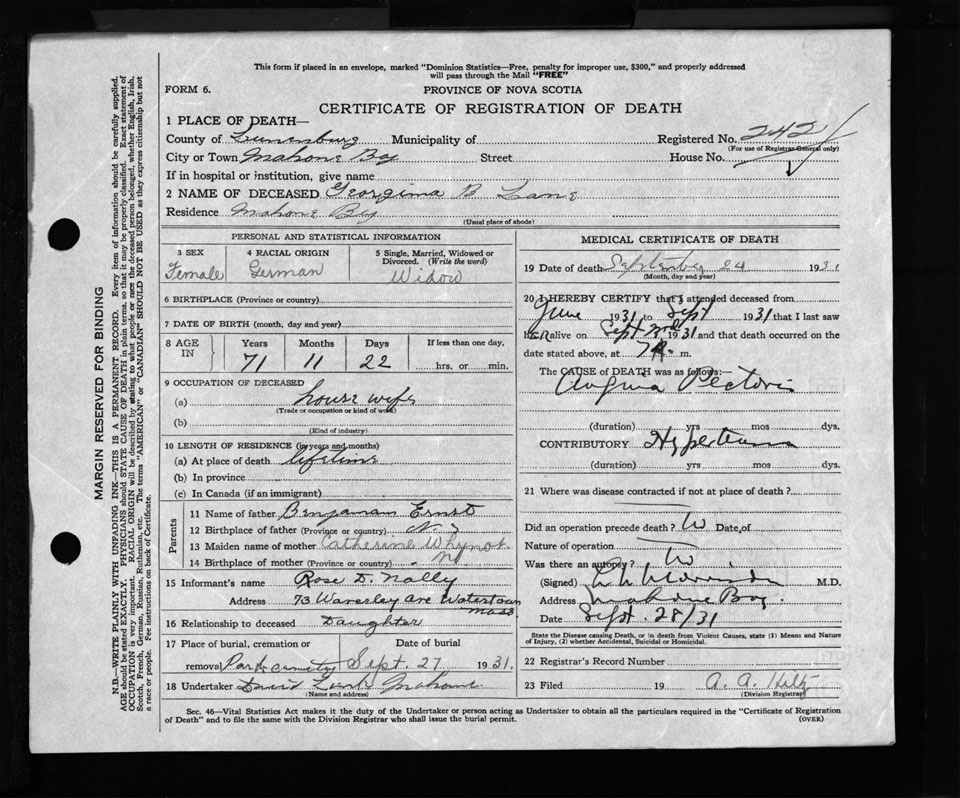 This form if placed in an envelope, marked "Dominion Statistics—Free, penalty for improper use, $300," and properly addressed
will pass through the Mail "FREE"
FORM 6. PROVINCE OF NOVA SCOTIA
CERTIFICATE OF REGISTRATION OF DEATH
1 PLACE OF DEATH—
County of Lunenburg Municipality of Registered No. 242
(For use of Registrar General only)
City or Town Mahone Bay Street House No.
If in hospital or institution, give name
2 NAME OF DECEASED Georgina B Lane
Residence Mahone Bay
(Usual place of abode)
PERSONAL AND STATISTICAL INFORMATION
3 SEX 4 RACIAL ORIGIN 5 Single, Married, Widowed or
Divorced. (Write the word)
Female German Widow
6 BIRTHPLACE (Province or country)
7 DATE OF BIRTH (month, day and year)
8 AGE IN Years Months Days If less than one day.
71 11 22 hrs. or min.
9 OCCUPATION OF DECEASED
(a) house wife
(Trade or occupation or kind of work)
(b)
(Kind of industry)
10 LENGTH OF RESIDENCE (in years and months)
(a) At place of death lifetime
(b) In province
(c) In Canada (if an immigrant)
Parents
11 Name of father Benjaman Ernst
12 Birthplace of father (Province or country) N.S
13 Maiden name of mother Catherine Whynot
14 Birthplace of mother (Province or country)
15 Informant's name Rose D. Nally
Address 73 Waverley Ave Watertown
Mass
16 Relationship to deceased Daughter
17 Place of burial, cremation or Date of burial
removal Park Sept. 27 1931.
18 Undertaker David Mahone
(Name and address)
MEDICAL CERTIFICATE OF DEATH
19 Date of death September 24 1931
(Month, day and year)
20 I HEREBY CERTIFY that I attended deceased from
June 1931 to Sept 1931 that I last saw
her alive on Sept 1931 and that death occurred on
date stated above, at 7 A. m.
The CAUSE of DEATH was as follows:—
Angina Pectoris
(duration) yrs mos dys.
CONTRIBUTORY
(duration) yrs mos dys.
21 Where was disease contracted if not at place of death?
Did an operation precede death? Date of
Nature of operation
Was there an autopsy?
(Signed) M.D.
Address Mahone Bay
Date Sept. 28/31
State the Disease causing Death, or in death from Violent Causes, state (1) Means and Nature
of Injury, (2) whether Accidental, Suicidal or Homicidal.
22 Registrar's Record Number
23 Filed 19 A. A. Hiltz
(Division Registrar)
Sec. 46—Vital Statistics Act makes it the duty of the Undertaker or person acting as Undertaker to obtain all the particulars required in the "Certificate of Registration
of Death" and to file the same with the Division Registrar who shall issue the burial permit. (OVER)
MARGIN RESERVED FOR BINDING
N.B.—WRITE PLAINLY WITH UNFADING INK—THIS IS A PERMANENT RECORD. Every item of information should be carefully supplied.
AGE should be stated EXACTLY. PHYSICIANS should STATE CAUSE OF DEATH in plain terms, so that it may be properly classified. Exact statement of
OCCUPATION is very important. RACIAL ORIGIN will be described by stating to what people or race the deceased person belonged, whether English, Irish,
Scotch, French, German, Russian, Ruthenian, etc. The terms "AMERICAN" or "CANADIAN" SHOULD NOT BE USED as they express citizenship but not
a race or people. Fee instructions on back of Certificate.